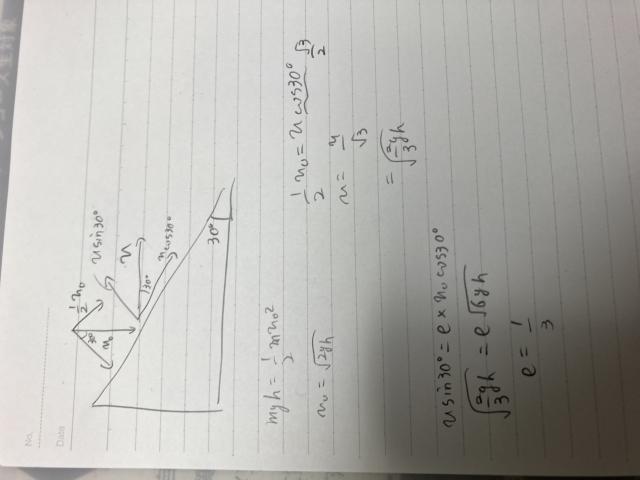 No.
Data
½ u₀
30°
u₀
u sin30°
u
30°
u cos30°
30°
mgh = ½ m u₀²
u₀ = √2gh
½ u₀ = u cos30° √3/2
u = u/√3
= √(2gh/3)
u sin30° = e × u₀ cos30°
√(2gh/3) = e√6gh
e = 1/3